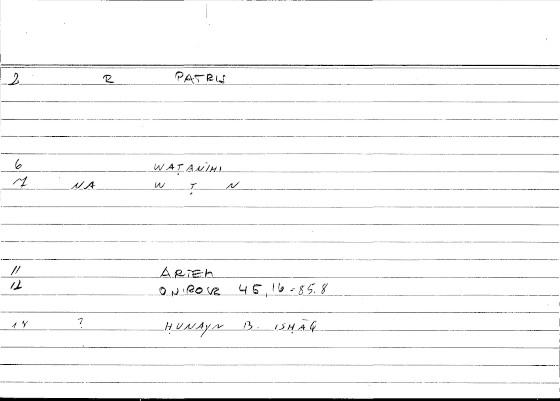 2 R PATRUI
6 WAṬANIHI
7 NA W Ṭ N
11 ARTEM
12 ONIROCR 45,16-85.8
14 ? ḤUNAYN B. ISḤĀQ